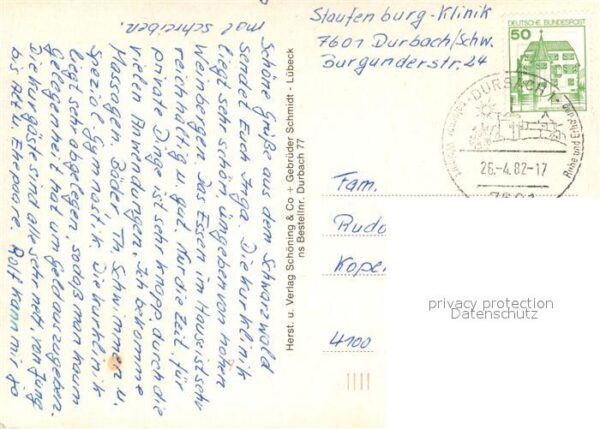 Schöne Grüße aus dem Schwarzwald
sendet Euch Inga. Die Kurklinik
liegt sehr schön, umgeben von hohen
Weinbergen. Das Essen im Hause ist sehr
reichhaltig u. gut. Nur die Zeit für
private Dinge ist sehr knapp durch die
vielen Anwendungen. Ich bekomme
Massagen, Bäder, Th. Schwimmen u.
spezial Gymnastik. Die Kurklinik
liegt sehr abgelegen, sodaß man kaum
Gelegenheit hat um Geld auszugeben.
Die Kurgäste sind alle sehr nett, von Jung
bis Alt u. Ehepaare. Rolf kann mir ja
mal schreiben.
Herst. u. Verlag Schöning & Co + Gebrüder Schmidt - Lübeck
ns Bestellnr. Durbach 77
Staufenburg-Klinik
7601 Durbach/Schw.
Burgunderstr. 24
DEUTSCHE BUNDESPOST
50
DURBACH
Ruhe und Erholung
26.-4.82-17
7601
Fam.
Rudo
Kope
4100
privacy protection
Datenschutz